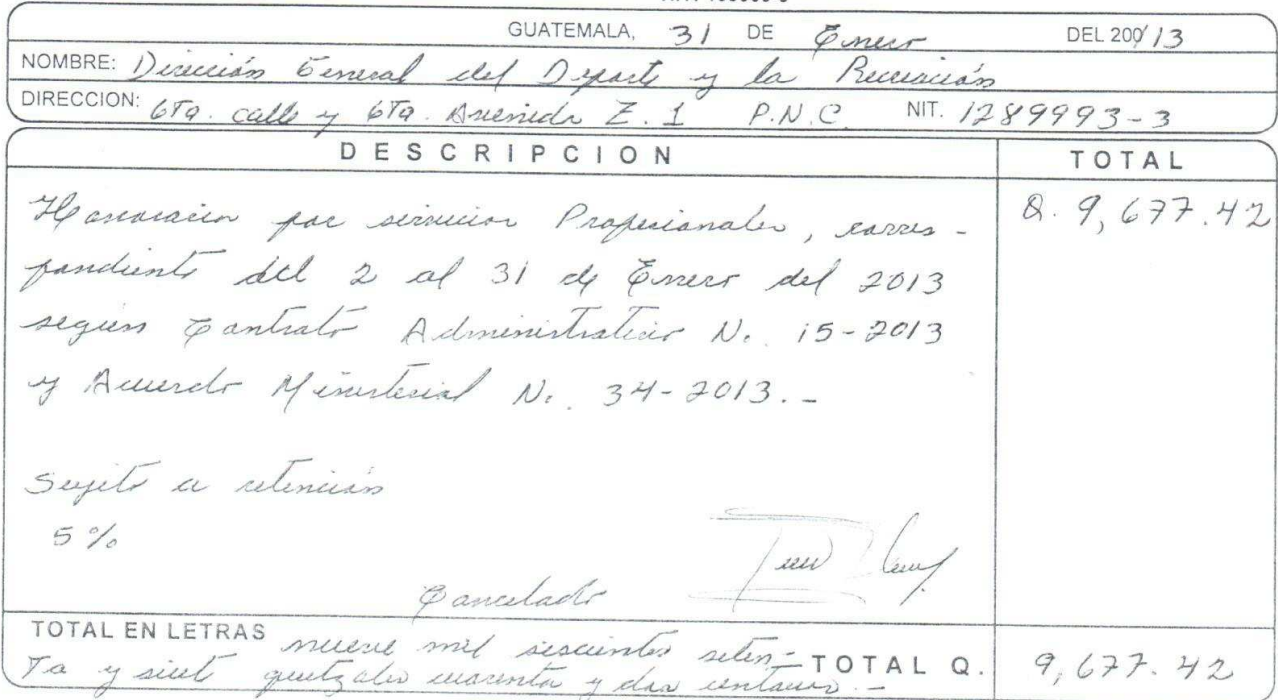 GUATEMALA, 31 DE Enero DEL 200/13
NOMBRE: Dirección General del Deporte y la Recreación
DIRECCION: 6Ta. calle y 6Ta. Avenida Z. 1 P.N.C. NIT. 1289993-3
DESCRIPCION TOTAL
Honorarios por servicios Profesionales, corres- Q. 9,677.42
pondiente del 2 al 31 de Enero del 2013
según Contrato Administrativo No. 15-2013
y Acuerdo Ministerial No. 34-2013.-
Sujeto a retención
5%
Cancelado
TOTAL EN LETRAS nueve mil seiscientos seten-
Ta y siete quetzales cuarenta y dos centavos.- TOTAL Q. 9,677.42